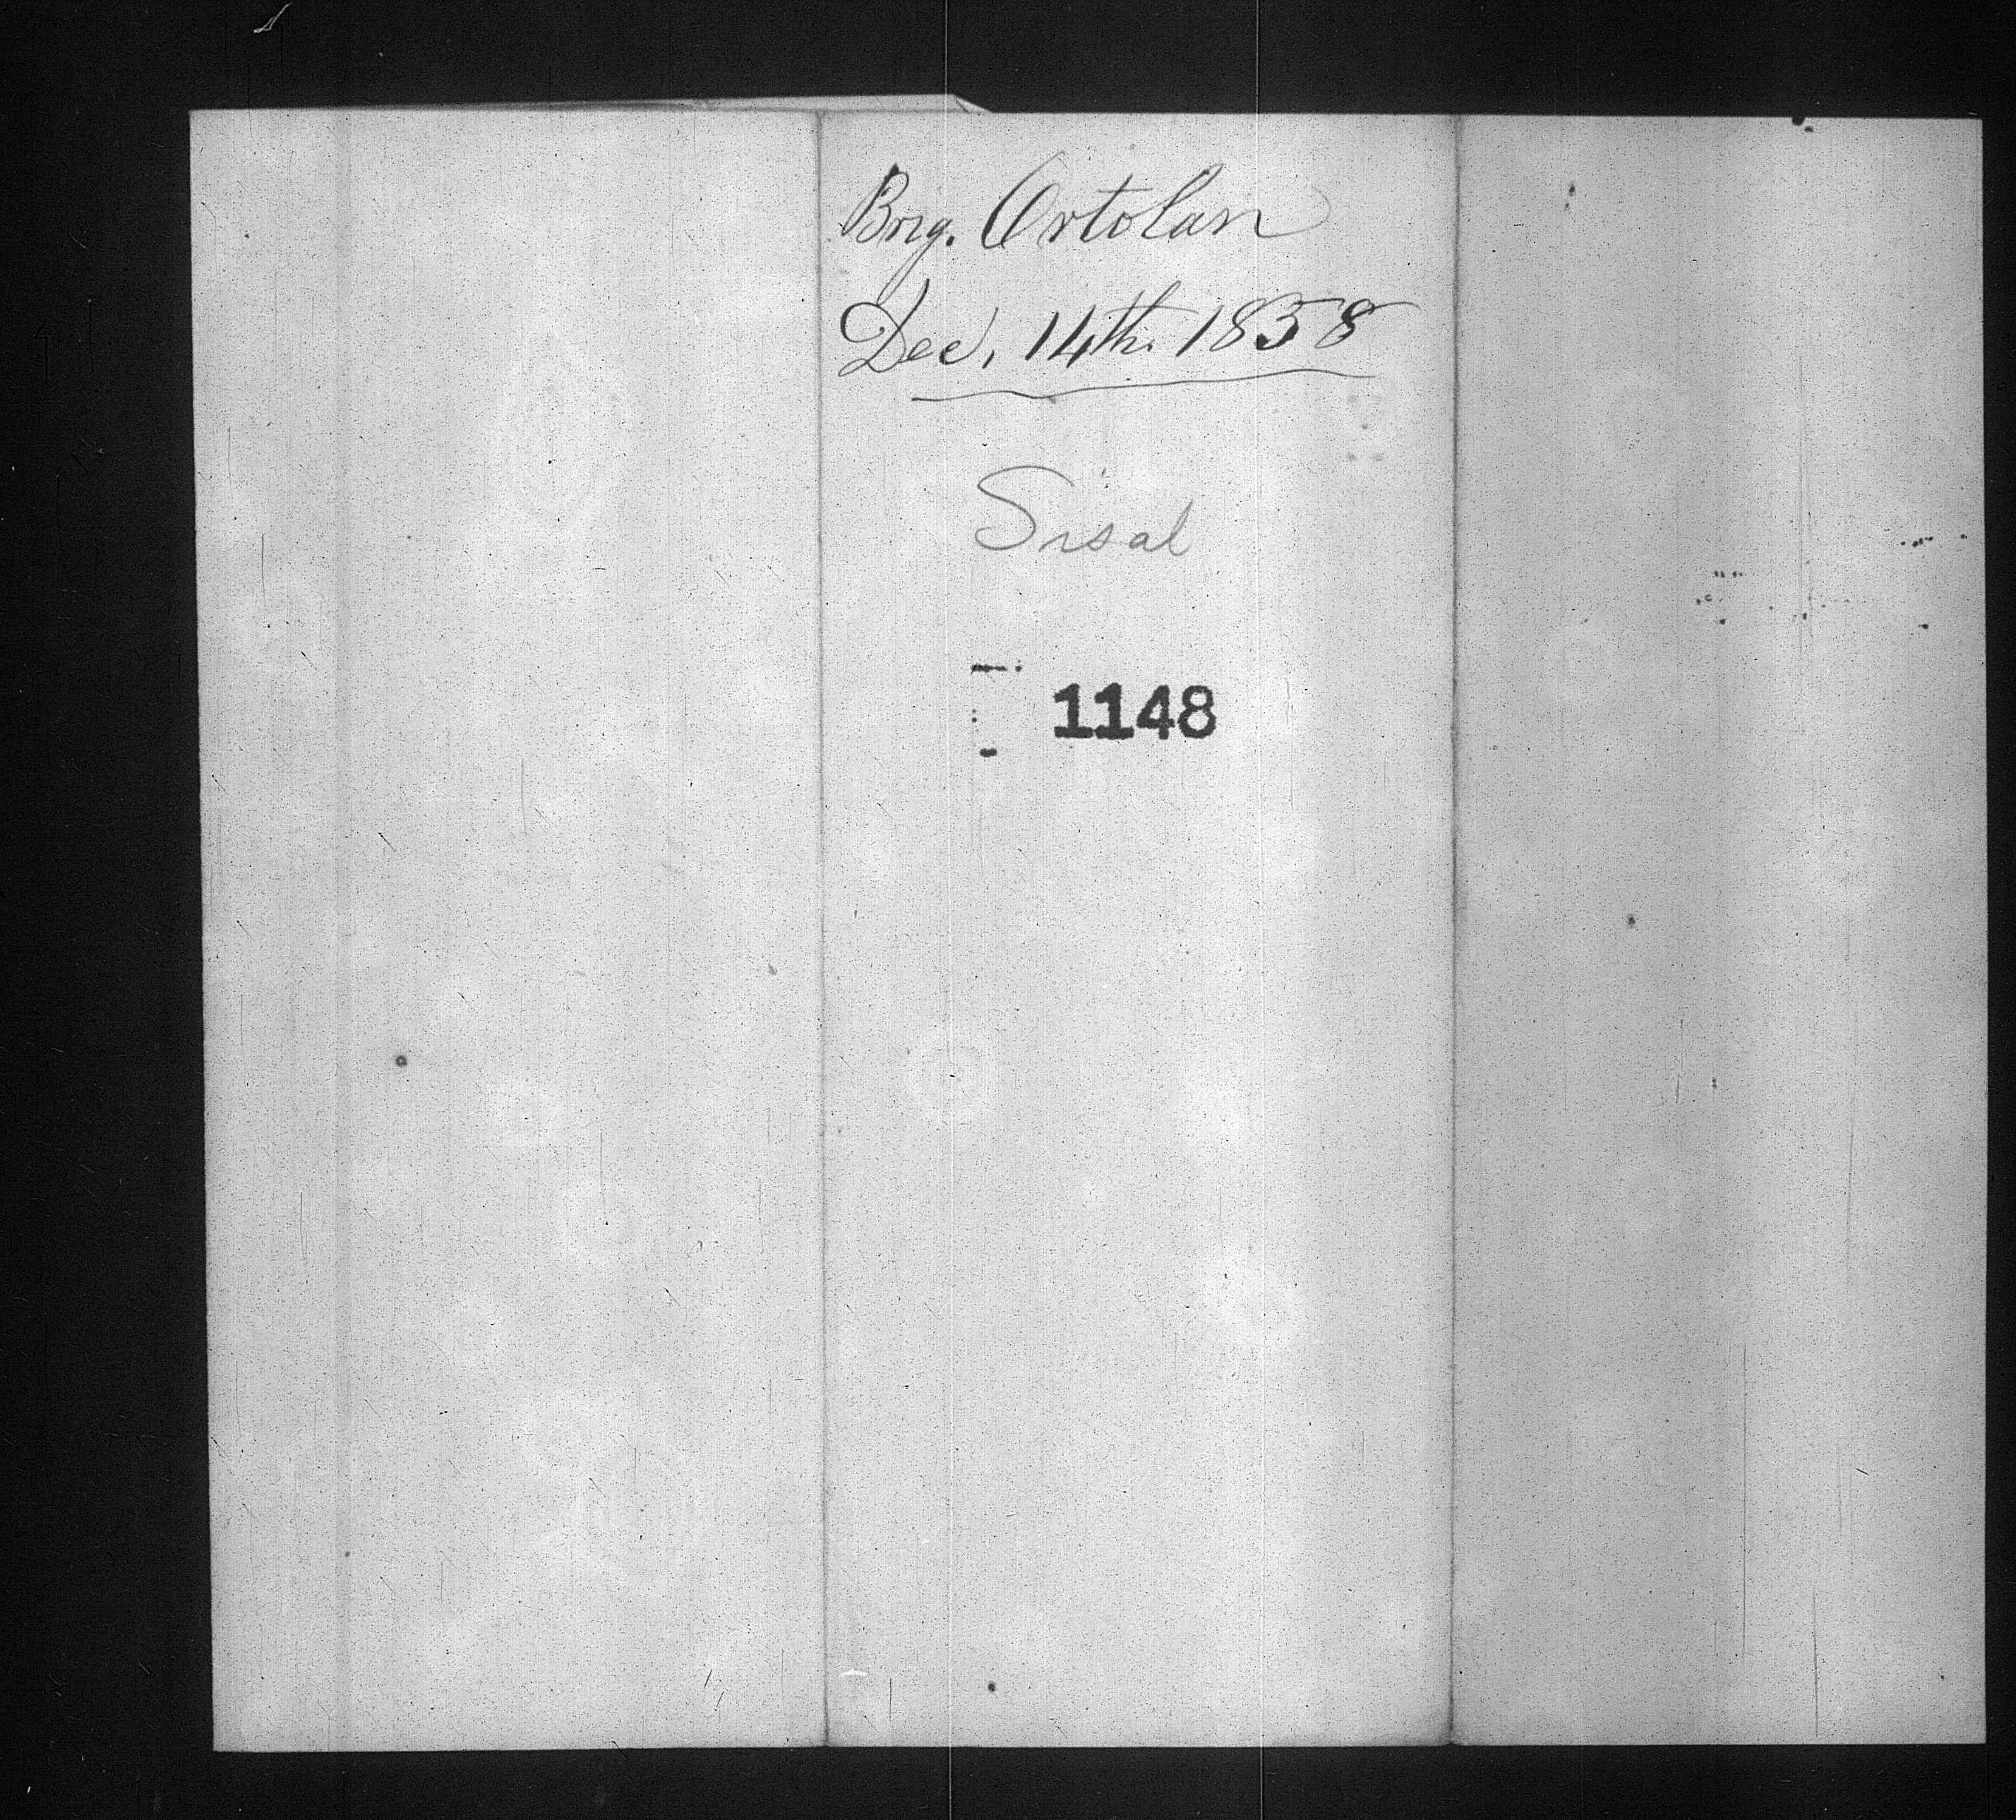 Brig. Ortolan
Dec, 14th. 1838
Sisal
1148